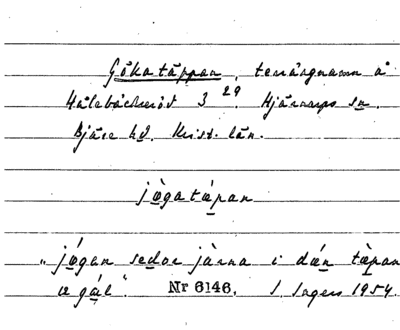 Gökatäppan, terrängnamn å
Hålebäckseröd 3 29. Hjärnarps sn.
Bjäre hd. Krist. län.
jògatǽpan
"jógan sedor jàrna i dǽn tæ̀pan
a gál". Nr 6146. I. Ingers 1954.